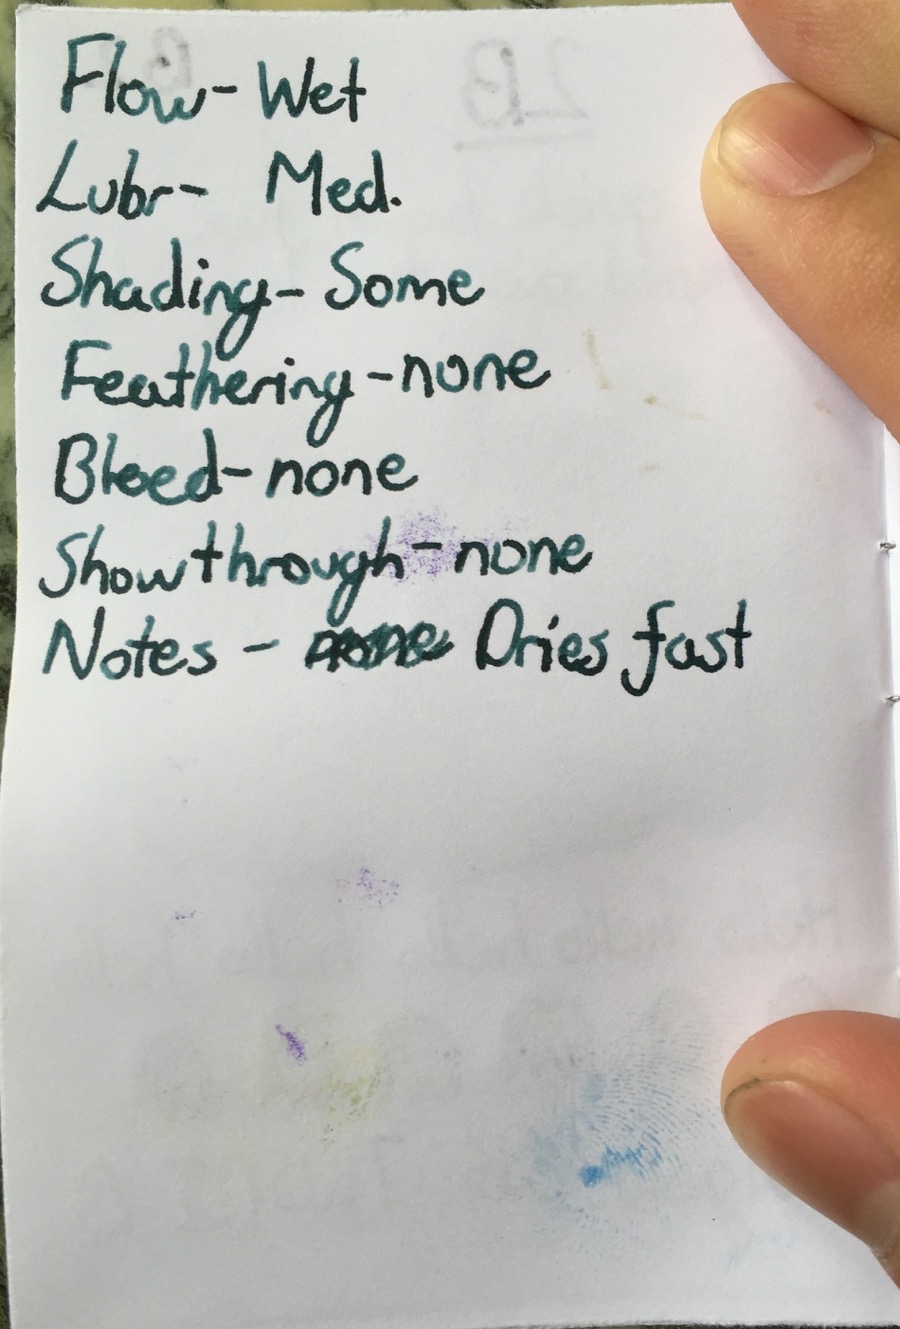 Flow - Wet
Lubr - Med.
Shading - Some
Feathering - none
Bleed - none
Showthrough - none
Notes - Dries fast
2B